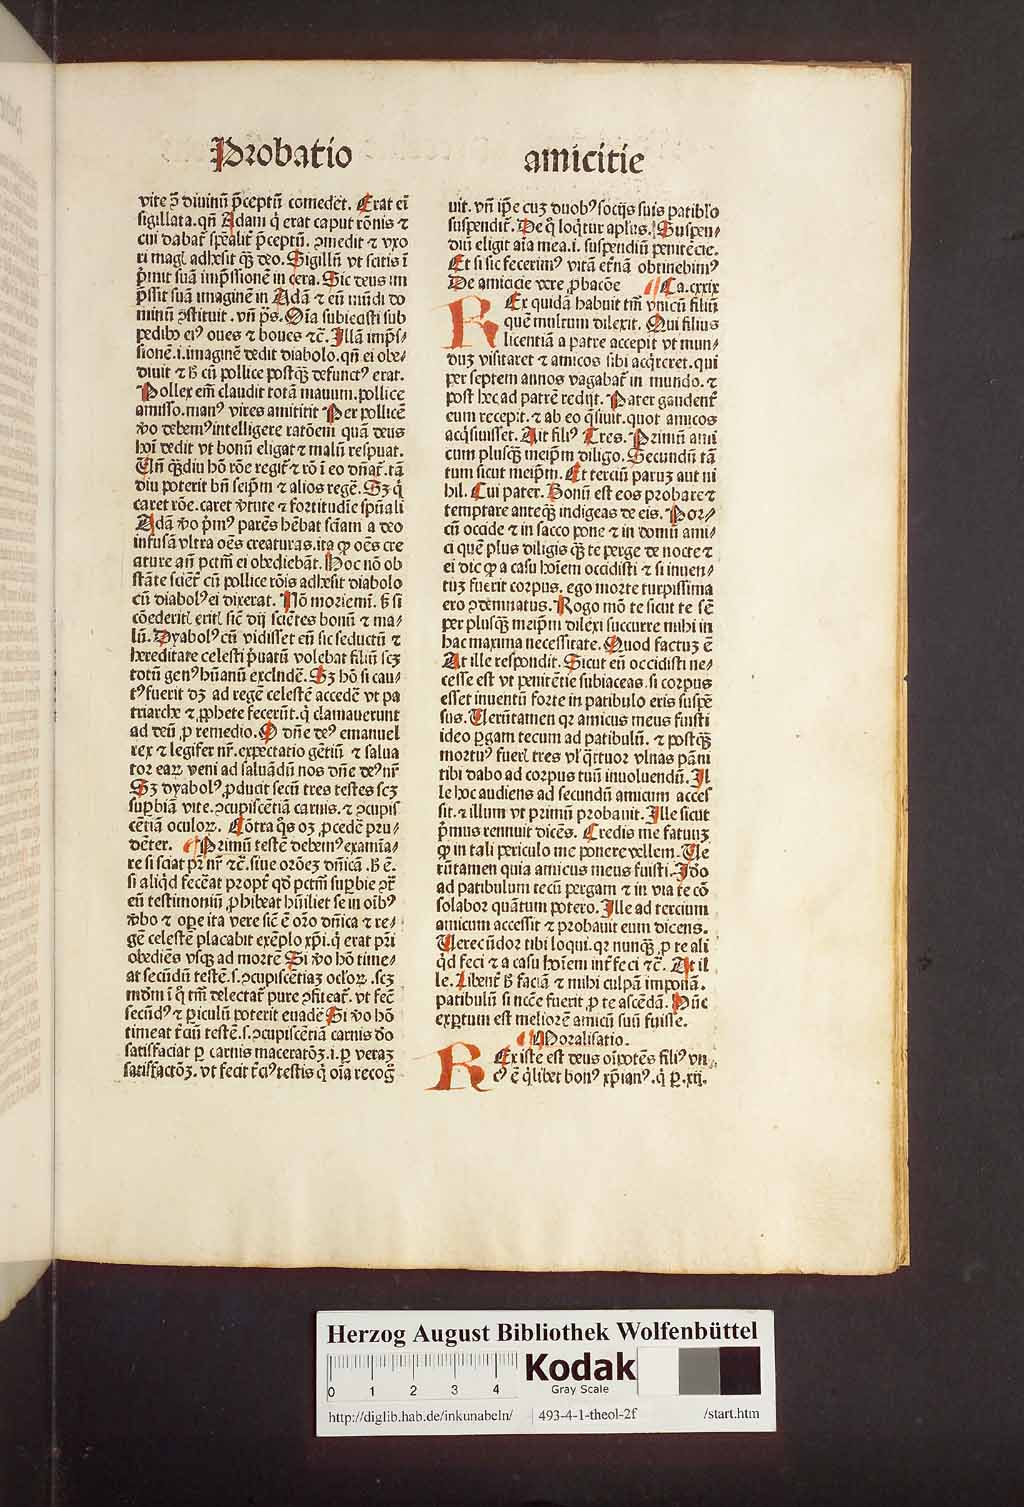 Probatio
amicitie
vite ꝯ̄ diuinū p̄ceptū comedēt. Erat eī
sigillata. qn̄ Adam q̇ erat caput rōnis ⁊
cui dabat᷑ spēalit᷑ p̄ceptū. ꝯmedit ⁊ vxo
ri magꝭ adhesit qꝫ̄ deo. Sigillū vt scitis ī
p̄mit suā imp̄ssionē in cera. Sic deus im
p̄ssit suā imaginē in Adā ⁊ eū mūdi do
minū ꝯstituit. vn̄ ps̄. Oīa subiecisti sub
pedibꝰ eiꝰ oues ⁊ boues ⁊c̄. Illā imp̄s⸗
sionē .i. imaginē dedit diabolo. qn̄ ei obe⸗
diuit ⁊ ꝫ cū pollice postqꝫ̄ defunctꝰ erat.
Pollex em̄ claudit totā manum. pollice
amisso. manꝰ vires amititit Per pollicē
v̄o debemꝰ intelligere ratōem quā deus
hoī dedit vt bonū eligat ⁊ malū respuat.
Un̄ qꝫ̄diu hō rōe regit᷑ ⁊ rō ī eo dn̄at᷑. tā
diu poterit bn̄ seip̄m ⁊ alios regē. Sꝫ q̇
caret rōe. caret v̄tute ⁊ fortitudīe spūali
Adā v̄o p̄mꝰ parēs hēbat sciam a deo
infusā vltra oēs creaturas. ita ꝙ oēs cre
ature an̄ pctm̄ ei obediebāt. Hoc nō ob
stāte sciēt᷑ cū pollice rōis adhesit diabolo
cū diabolꝰ ei dixerat. Nō moriemī. ꝫ si
cōederitꝭ eritꝭ sic̄ dij sciētes bonū ⁊ ma⸗
lū. Dyabolꝰ cū vidisset eū sic seductū ⁊
hereditate celesti p̄uatū volebat filiū scꝫ
totū genꝰ hūanū excludē. Sꝫ hō si cau⸗
tꝰ fuerit dꝫ ad regē celestē accedē vt pa
triarche ⁊ ꝓphete fecerūt. q̇ clamauerunt
ad deū ꝓ remedio. O dn̄e deꝰ emanuel
rex ⁊ legifer nr̄. expectatio gētiū ⁊ salua
tor eaꝝ veni ad saluādū nos dn̄e deꝰ nr̄
Sꝫ dyabolꝰ ꝓducit secū tres testes scꝫ
supbiā vite. ꝯcupiscētiā carnis. ⁊ ꝯcupis
cētiā oculoꝝ. Cōtra q̊s oꝫ ꝓcedē pru⸗
dēter. Primū testē debemꝰ examīa⸗
re si sciat pr̄ nr̄ ⁊c̄. siue orōeꝫ dn̄icā. ꝫ ē.
si aliqḋ fecēat propt᷑ qḋ pctm̄ supbie ꝯt᷑
eū testimoniū ꝓhibeat hūiliet se in oībꝰ
v̄bo ⁊ ope ita vere sic̄ ē oro dn̄ica ⁊ re⸗
gē celestē placabit exēplo xp̄i. q̇ erat pr̄i
obediēs vsqꝫ ad mortē Si v̄o hō time⸗
at secūdū testē .s. ꝯcupiscētiaꝫ ocloꝝ. scꝫ
mōm ī q̇ tm̄ delectat᷑ pure ꝯfiteat᷑. vt fec̄
secūdꝰ ⁊ ꝑiculū poterit euadē Si v̄o hō
timeat tᷣciū testē .s. ꝯcupiscētiā carnis do
satisfaciat ꝑ carnis maceratōꝫ .i. ꝑ veraꝫ
satisfactōꝫ. vt fecit tᷣciꝰ testis q̇ oīa recog
uit. vn̄ ip̄e cuꝫ duobꝰ socijs suis patiblo
suspendit᷑. De q̇ loq̇tur aplus. Suspen⸗
diū eligit aīa mea .i. suspendiū penitēcie.
Et si sic fecerimꝰ vitā et᷑nā obtinebimꝰ
De amicicie vere ꝓbacōe Ca. cxxix
REx quidā habuit tm̄ vnicū filiū
quē multum dilexit. Qui filius
licentiā a patre accepit vt mun⸗
duꝫ visitaret ⁊ amicos sibi acq̇reret. qui
per septem annos vagabat᷑ in mundo. ⁊
post hec ad patrē redijt. Pater gaudent᷑
eum recepit. ⁊ ab eo q̇siuit. quot amicos
acq̇siuisset. Ait filiꝰ Tres. Primū ami
cum plusqꝫ̄ meip̄m diligo. Secundū tā
tum sicut meip̄m. Et terciū paruꝫ aut ni
hil. Cui pater. Bonū est eos probare ⁊
temptare anteqꝫ̄ indigeas de eis. Por⸗
cū occide ⁊ in sacco pone ⁊ in domū ami⸗
ci quē plus diligis qꝫ̄ te perge de nocte ⁊
ei dic ꝙ a casu hoīem occidisti ⁊ si inuen⸗
tuꝫ fuerit corpus. ego morte turpissima
ero ꝯdemnatus. Rogo mō te sicut te sē
per plusqꝫ̄ meip̄m dilexi succurre mihi in
hac maxima necessitate. Quod factuꝫ ē
At ille respondit. Sicut eū occidisti ne⸗
cesse est vt penitētie subiaceas. si corpus
esset inuentū forte in patibulo eris suspē
sus. Uerūtamen qꝛ amicus meus fuisti
ideo pergam tecum ad patibulū. ⁊ postqꝫ̄
mortuꝰ fueꝭ tres vl̓ q̇rtuor vlnas pāni
tibi dabo ad corpus tuū inuoluendū. Il
le hoc audiens ad secundū amicum acces
sit. ⁊ illum vt primū probauit. Ille sicut
p̄mus rennuit dicēs. Credis me fatuuꝫ
ꝙ in tali periculo me ponere vellem. Ue
rūtamen quia amicus meus fuisti. Ido
ad patibulum tecū pergam ⁊ in via te cō
solabor quātum potero. Ille ad tercium
amicum accessit ⁊ probauit eum dicens.
Uerecūdor tibi loqui. qꝛ nunqꝫ̄ ꝓ te ali
qḋ feci ⁊ a casu hoīem int᷑feci ⁊c̄. At il
le. Libent᷑ ꝫ faciā ⁊ mihi culpā imponā.
patibulū si nc̄ce fuerit ꝓ te ascēdā. Hūc
expertum est meliorē amicū suū fuisse.
Moralisatio.
REx iste est deus oīpotēs filiꝰ vn⸗
cꝰ ē q̇libet bonꝰ xp̄ianꝰ. q̇ ꝑ .xij.
Herzog August Bibliothek Wolfenbüttel
0 1 2 3 4
Kodak
Gray Scale
http://diglib.hab.de/inkunabeln/ 493-4-1-theol-2f /start.htm